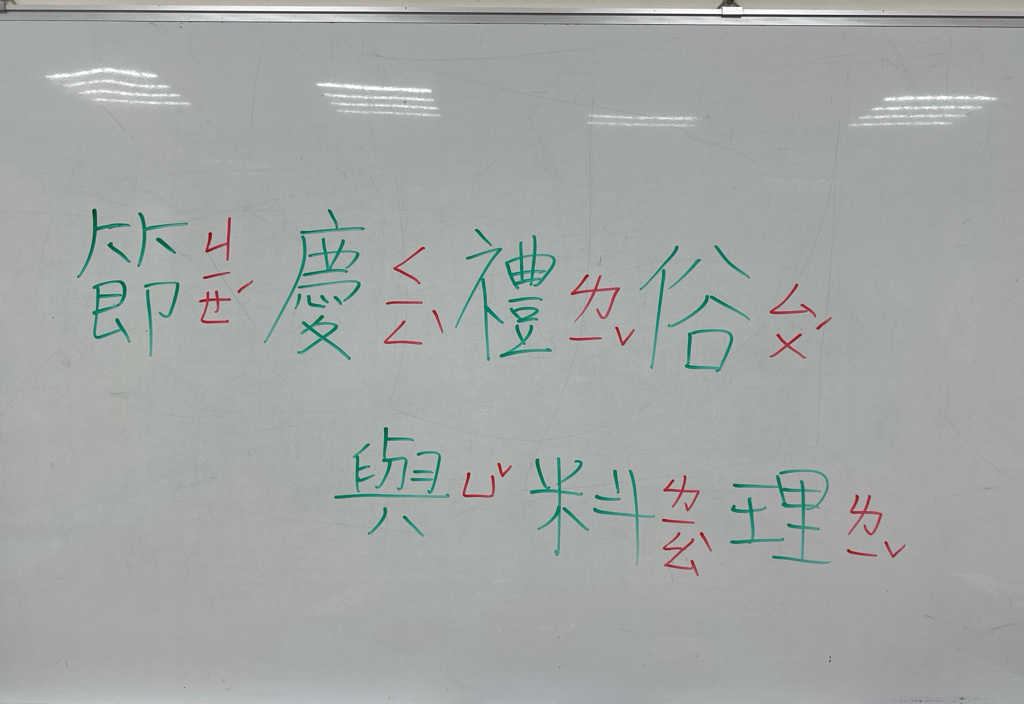 節ㄐㄧㄝˊ慶ㄑㄧㄥˋ禮ㄌㄧˇ俗ㄙㄨˊ
與ㄩˇ料ㄌㄧㄠˋ理ㄌㄧˇ